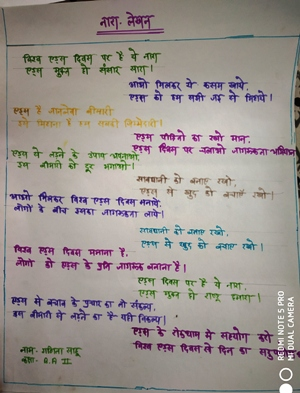 नारा-लेखन
विश्व एड्स दिवस पर है ये नारा
एड्स मुक्त हो संसार सारा।
आओ मिलकर ये कसम खाये,
एड्स को हम सभी जड़ से मिटाये।
एड्स है जानलेवा बीमारी
इसे मिटाना है हम सबकी जिम्मेदारी।
एड्स पीड़ितों का रखो मान,
एड्स दिवस पर चलाओ जागरूकता अभियान
एड्स से बचने के उपाय अपनाओ
इस बीमारी को दूर भगाओ।
सावधानी को बनाए रखो,
एड्स से खुद को बचाए रखो।
आओ मिलकर विश्व एड्स दिवस मनाये,
लोगों के बीच इसका जागरूकता लाये।
सावधानी को बनाए रखो,
एड्स से खुद को बचाए रखो।
विश्व एड्स दिवस मनाना है,
लोगों को एड्स के प्रति जागरूक बनाना है।
एड्स दिवस पर है ये नारा,
एड्स मुक्त हो राष्ट्र हमारा।
एड्स से बचाव के प्रचार का लो संकल्प,
इस बीमारी से बचने का है यही विकल्प।
एड्स के रोकथाम में सहयोग करो
विश्व एड्स दिवस के दिन का
नाम-
कक्षा- B.A II
REDMI NOTE 5 PRO
MI DUAL CAMERA